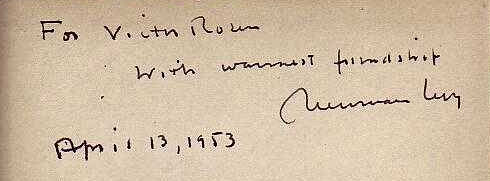 For Victor Rosen
With warmest friendship
Newman Levy
April 13, 1953